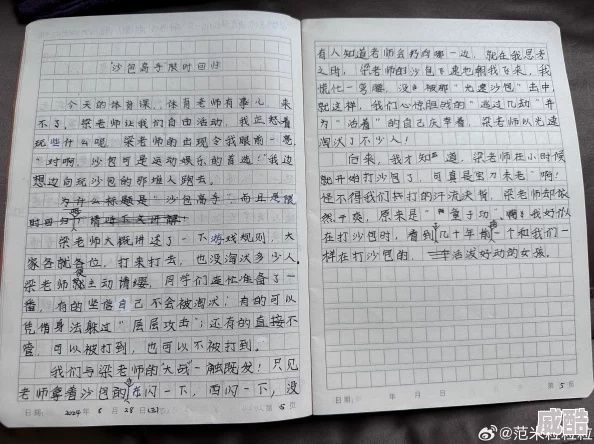 沙包高手限时回归
今天的体育课，体育老师有事儿，来
不了，梁老师让我们自由活动，我正愁着
玩些什么呢，梁老师的出现令我眼前一亮，
“对啊，沙包可是运动娱乐的首选！”我边
想边向玩沙包的那堆人跑去。
为什么标题是“沙包高手”，而且是限
时回归？请听下文讲解
梁老师大概讲述了一下游戏规则，大
家各就各位，打来打去，也没淘汰多少人。
梁老师就主动请缨，同学们连忙准备了一
番，有的坚信自己不会被淘汰；有的可以
凭借身法躲过“层层攻击”；还有的直接不
管，可以被打到，也可以不被打到。
我们与梁老师的“大战”一触既发！只见
老师拿着沙包的在闪一下，西闪一下，没
日期： 2024 年 6 月 28 日(五)
第 5 页
有人知道老师会扔向哪一边，就在我思考
之时，梁老师的沙包飞速地朝我飞来，我
慌忙一弯腰，没被那“光速沙包”击中
就这样，我们心惊胆战的“逃过几劫”并
为“活着”的自己庆幸着，梁老师以光速
淘汰了不少人！
后来，我才知道，梁老师在小时候
就开始打沙包了，可真是宝刀未老”啊！
怪不得我们打的汗流浃背，梁老师却依
然干爽，原来是“童子功”啊！我好似
在打沙包时，看到几十年前一个和我们一
样在打沙包的，活泼好动的女孩。
日期： 年 月 日
第 5 页
@范米粒粒粒
威酷